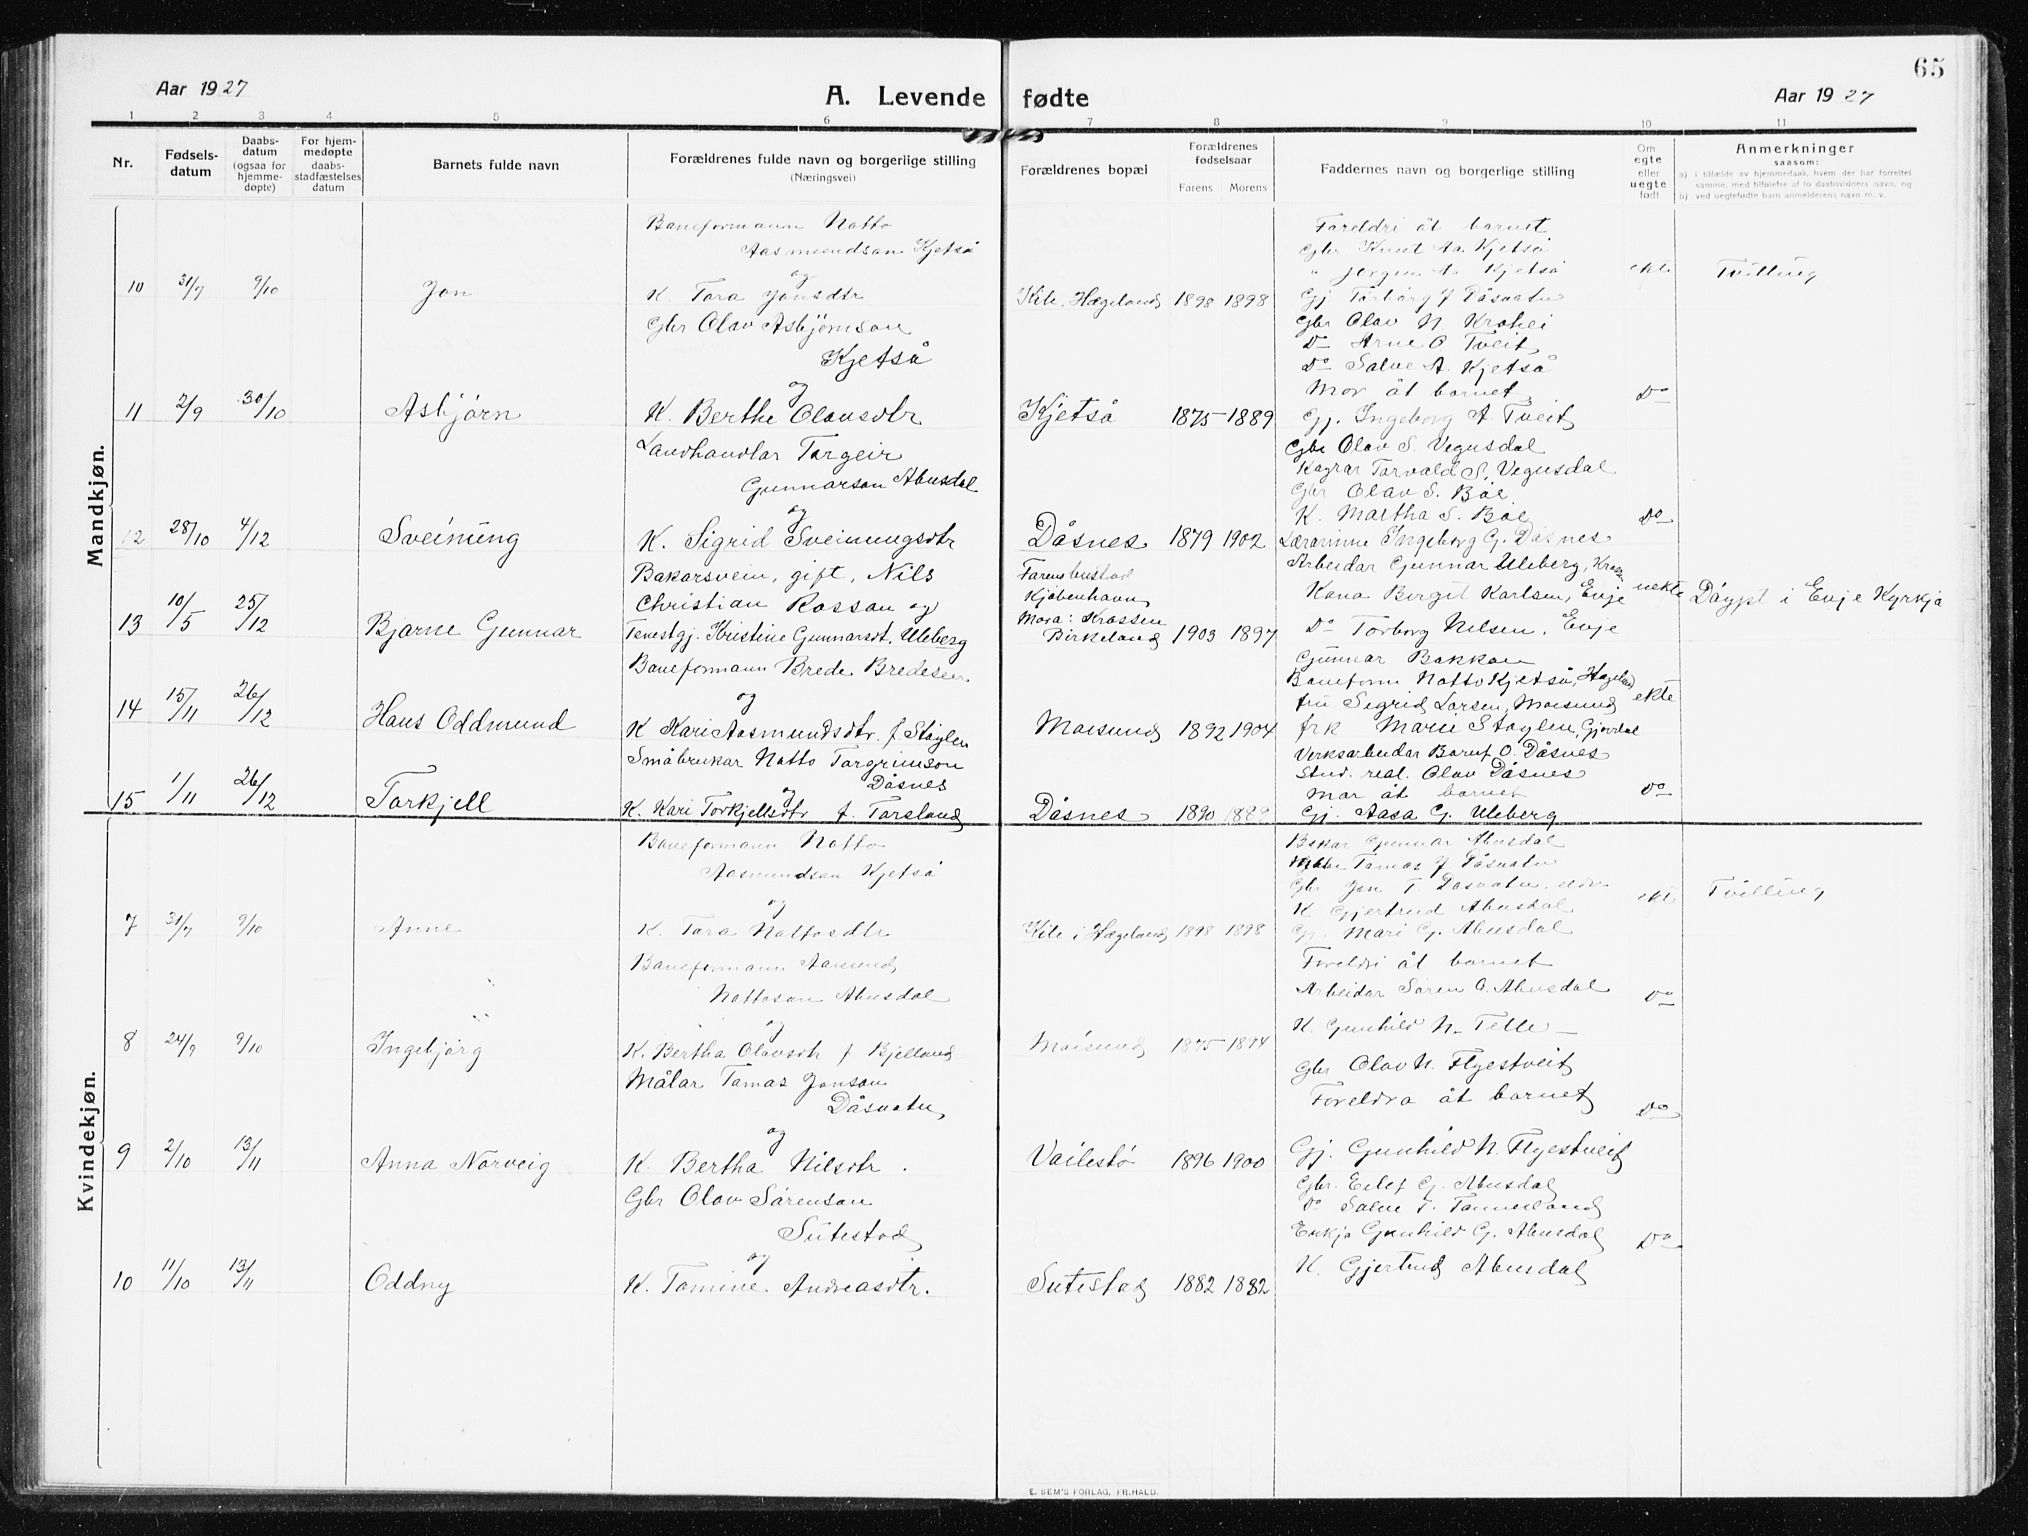 65
Aar 1927
A. Levende fødte
Aar 1927
1 2 3 4 5 6 7 8 9 10 11
Nr.
Fødsels-datum
Daabs-datum (ogsaa for hjemme-døpte)
For hjem-medøpte daabs-stadfæstelses datum
Barnets fulde navn
Forældrenes fulde navn og borgerlige stilling
(Næringsvei)
Forældrenes bopæl
Forældrenes fødselsaar
Farens Morens
Faddernes navn og borgerlige stilling
Om egte eller uegte født
Anmerkninger
saasom:
a) i tilfælde av hjemmedaab, hvem der har forrettet samme, med tilføielse af to daabsvidners navn, og
b) ved uegtefødte barn anmelderens navn m. v.
Mandkjøn.
Baneformann Natto
Aasmundson Kjetså
og
10 31/7 9/10 Jon K. Tora Jonsdtr Kile, Hægeland 1898 1898
Foreldri åt barnet
Gbr Knut Aa. Kjetså
" Jørgen A. Kjetså
Gj Torborg J Dåsvatn
Gbr Olav N. Krohei
ekte Tvilling
Gbr Olav Asbjørnson
Kjetså
og
11 2/9 30/10 Asbjørn K. Berthe Olavsdtr Kjetså 1875 1889
Do Arne O Tveit
Do Salve A. Kjetså
Mor åt barnet
Gj. Ingeborg A. Tveit
Do
Landhandlar Torgeir
Gunnarson Abusdal
og
12 28/10 4/12 Sveinung K. Sigrid Sveinungsdtr Dåsnes 1879 1902
Gbr Olav S. Vegusdal
Torvald S. Vegusdal
Gbr Olav S. Bøe
K. Martha S. Bøe
Lærarinne Ingeborg G. Dåsnes
Do
Bakarsvein, gift, Nils
Christian Rossan og
13 10/5 25/12 Bjarne Gunnar Tenestgj. Kristine Gunnarsdt. Uleberg
Farens bustad
Kjøbenhavn
Mora: Krossen
Birkeland 1903 1897
Arbeidar Gunnar Uleberg,
Kona Bergit Karlsen, Evje
Do Torborg Nilsen, Evje
uekte Døypt i Evje Kyrkja
Baneformann Brede Bredesen
og
14 15/11 26/12 Hans Oddmund K Kari Aasmundsdtr. f. Støylen Moisund 1892 1904
Gunnar Bakken
Baneform Natto Kjetså, Hægeland
fru Sigrid Larsen, Moisund
frk Marie Støylen, Gjøvdal
ekte
Småbrukar Natto Torgrimson
Dåsnes
og
15 1/11 26/12 Torkjell K. Kari Torkjellsdtr f. Torsland Dåsnes 1890 1889
Verksarbeidar O. Dåsnes
Stud. real. Olav Dåsnes
Mor åt barnet
Gj. Aasa G. Uleberg
Do
Kvindekjøn.
Baneformann Natto
Aasmundson Kjetså
og
7 31/7 9/10 Anne K. Tora Nattosdtr Kile i Hægeland 1898 1898
Bakar Gunnar Abusdal
Tomas J Dåsvatn
Gbr Jon T. Dåsvatn, eldre
K Gjertrud Abusdal
Gj. Mari G. Abusdal
ekte Tvilling
Baneformann Aamund
Nattoson Abusdal
og
8 24/9 9/10 Ingebjørg K. Bertha Olavsdtr f Bjelland Moisund 1875 1894
Foreldri åt barnet
Arbeidar Søren O. Abusdal
K. Gunhild N. Telle
Do
Målar Tomas Jonson
Dåsvatn
og
9 2/10 13/11 Anna Norveig K. Bertha Nilsdtr. Vailestø 1896 1900
Gbr Olav N. Flyestveit
Foreldra åt barnet
Gj. Gunhild N. Flyestveit
Do
Gbr Olav Sørenson
Sutestad
og
10 11/10 13/11 Oddny K. Tomine Andreasdtr. Sutestad 1882 1882
Gbr. Eilef G. Abusdal
Do Salve T. Tannerland
Enkja Gunhild G. Abusdal
K. Gjertrud Abusdal
Do
E. SEM'S FORLAG, FR.HALD.